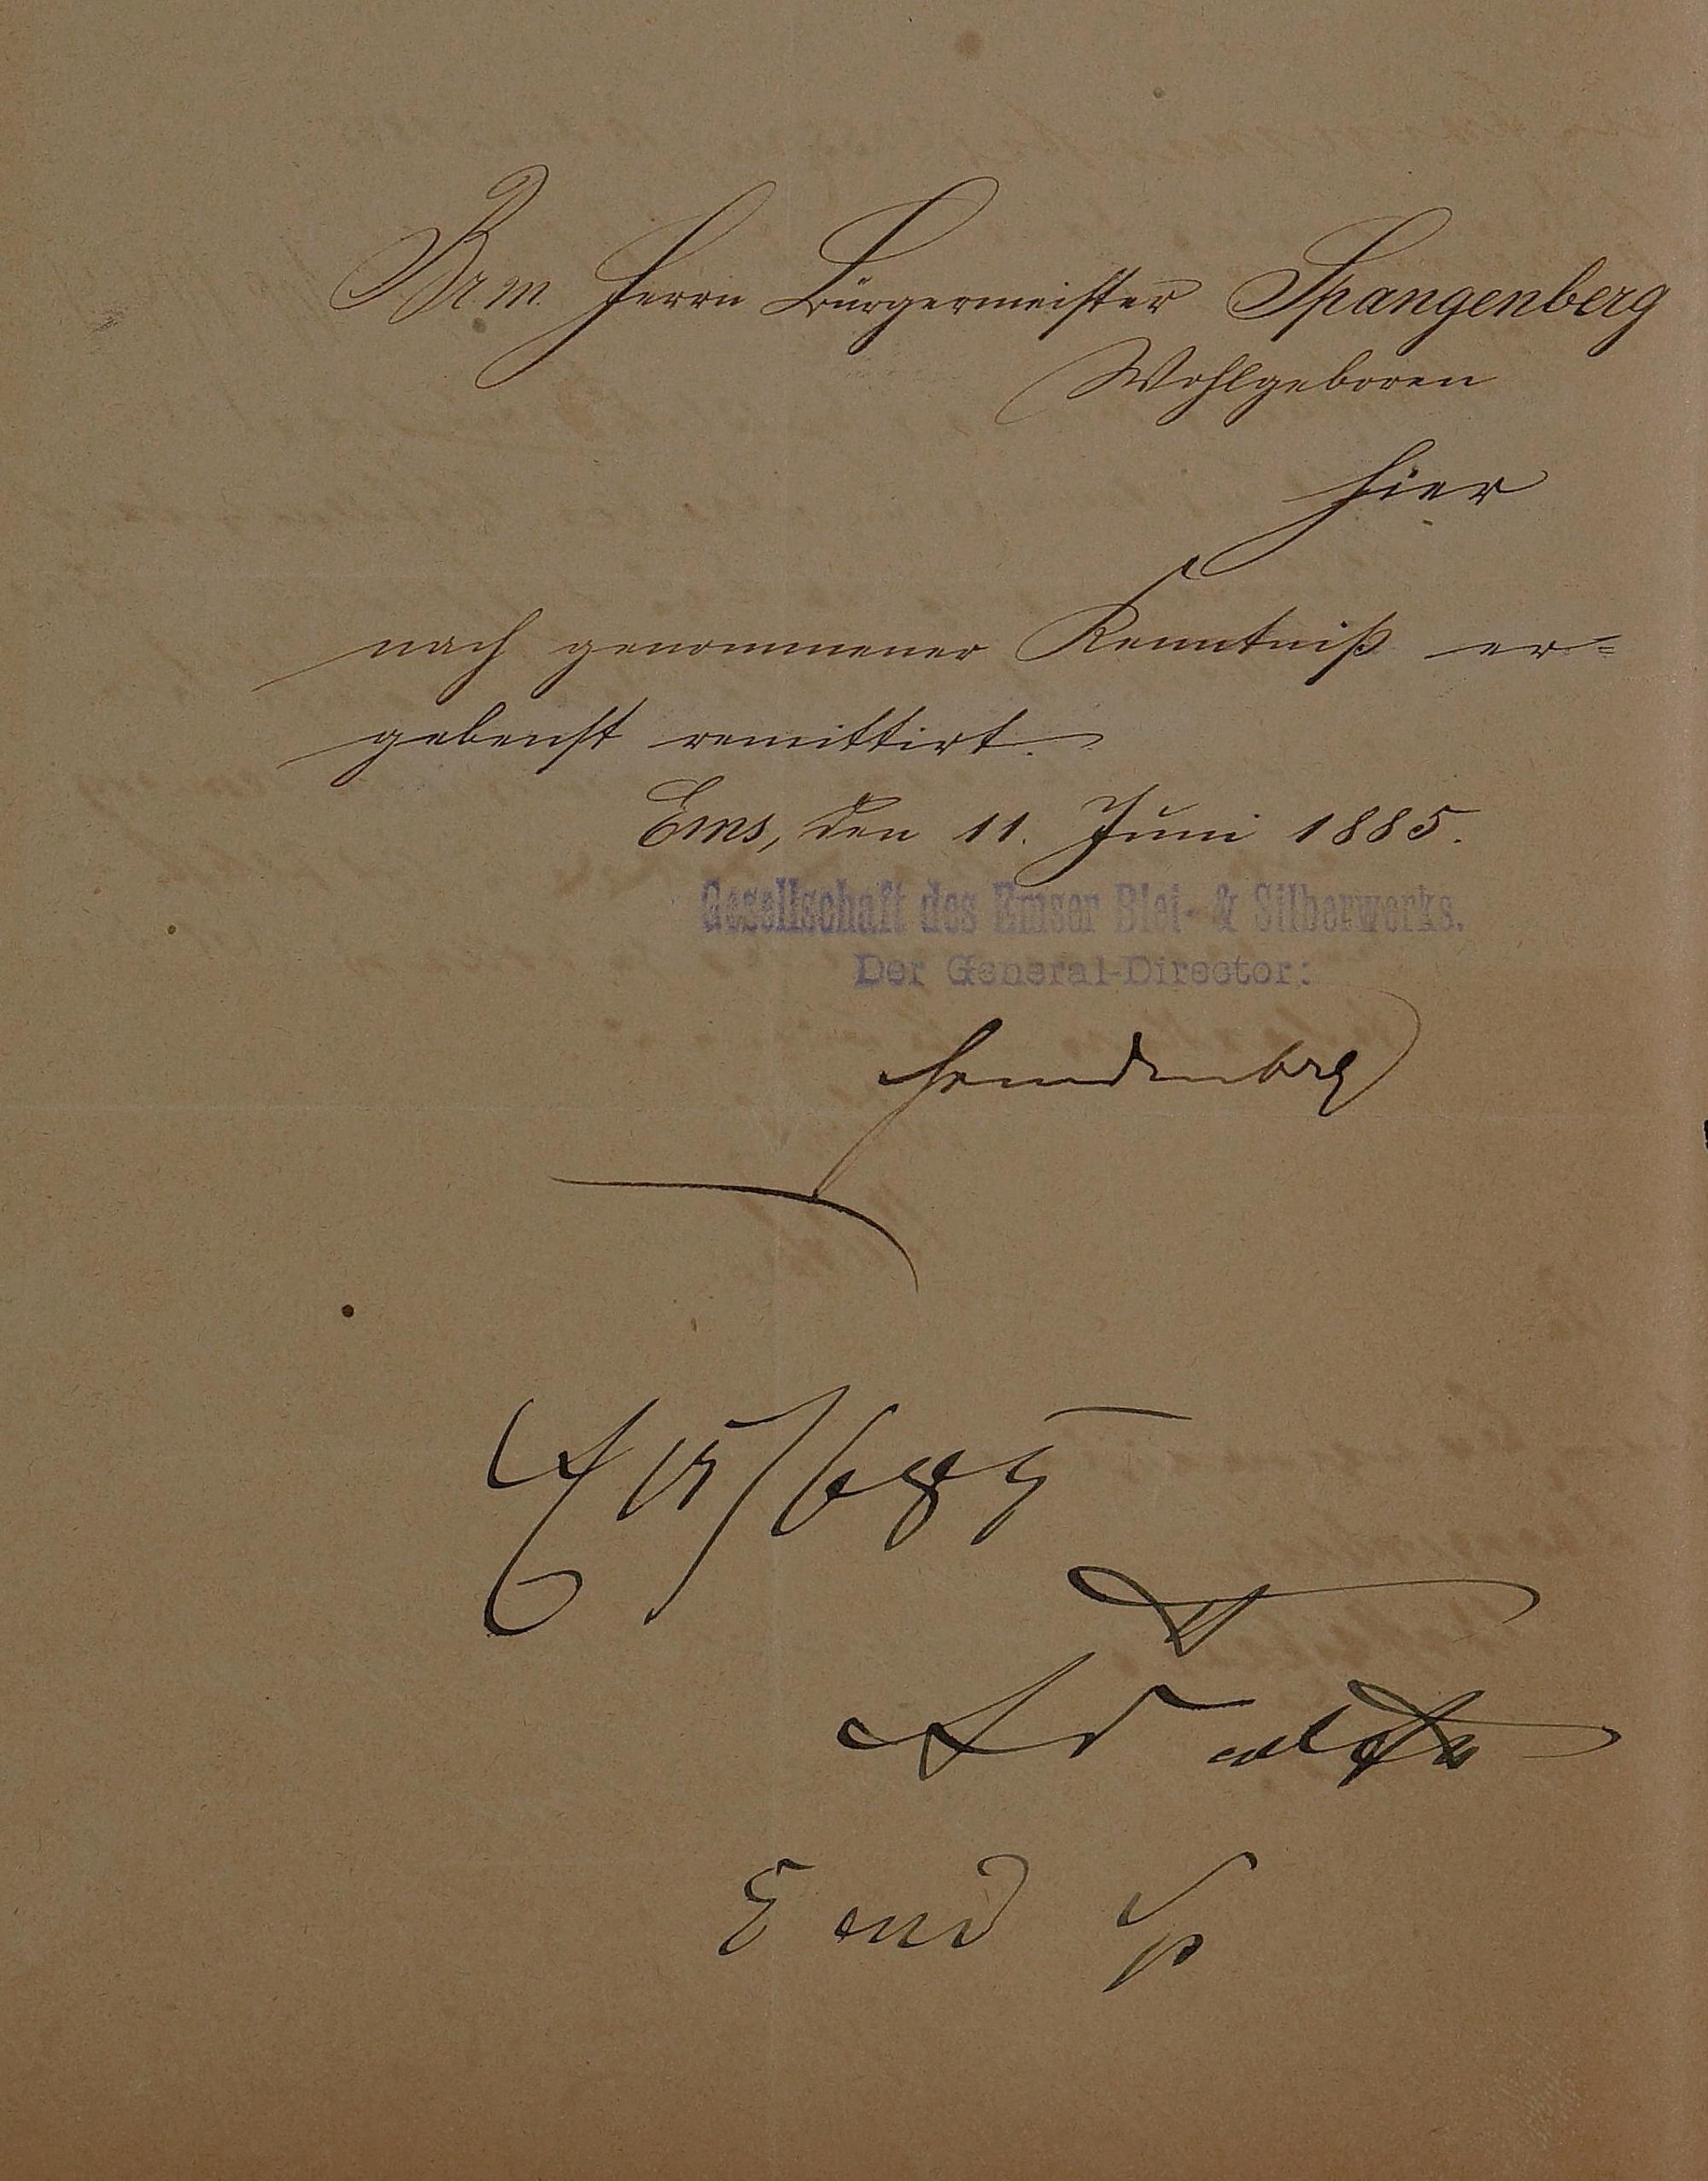 Brm. Herrn Bürgermeister Spangenberg
Wohlgeboren
hier
nach genommener Kenntniß er=
gebenst remittirt.
Ems, den 11. Juni 1885.
Gesellschaft des Emser Blei- & Silberwerks.
Der General-Director:
15/6 85